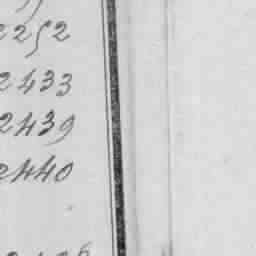 2252
2433
2439
2440